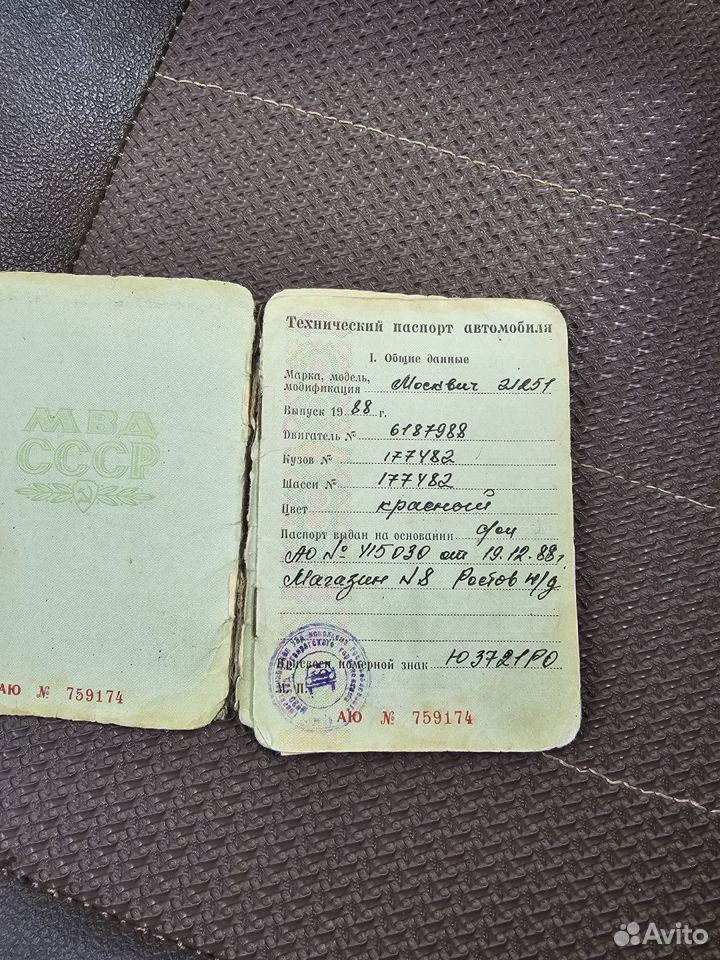 МВД
СССР
АЮ № 759174
Технический паспорт автомобиля
I. Общие данные
Марка, модель,
модификация Москвич 21251
Выпуск 19 88 г.
Двигатель № 6187988
Кузов № 177482
Шасси № 177482
Цвет красный
Паспорт выдан на основании
АЮ № 415030 от 19.12.88 г
Магазин N8 Ростов н/д
Присвоен номерной знак Ю3721РО
М. П.
АЮ № 759174
Avito